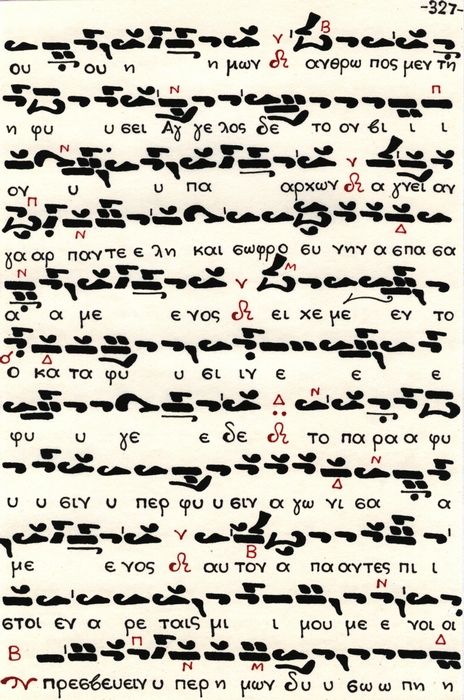 -327-
ου ου η η μων αν θρω πος μεν τη
η φυ υ σει Αγ γε λος δε το ον βι ι ι
ον υ υ πα αρχων α γνει αν
γα αρ παν τε ε λη και σωφρο συ νην α σπα σα
α α με ε νος ει χε με εν το
ο κα τα φυ υ σι ιν ε ε ε
φυ υ γε ε δε το πα ρα α φυ
υ υ σιν υ περ φυ υ σιν α γω νι σα α
με ε νος αυ τον α πα αν τες πι ι
στοι εν α ρε ταις μι ι μου με ε νοι οι
πρεσβευειν υ περ η μων δυ υ σω ω πη η